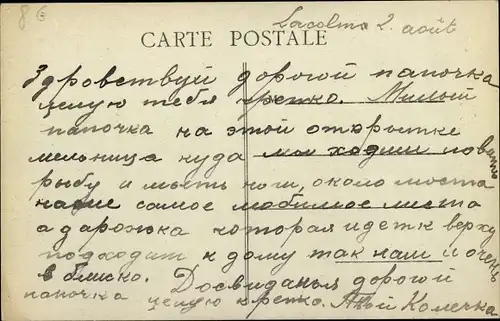 86
Lacolme 2. août
CARTE POSTALE
Здравствуй дорогой папочка
целую тебя крепко. Милый
папочка на этой открытке
мельница куда мы ходим ловить
рыбу и мыть ноги, около моста
наше самое любимое место
а дорожка которая идет к верху
подходит к дому так наш и очень
в близко. Досвиданья дорогой
папочка целую крепко. Твой Колечка